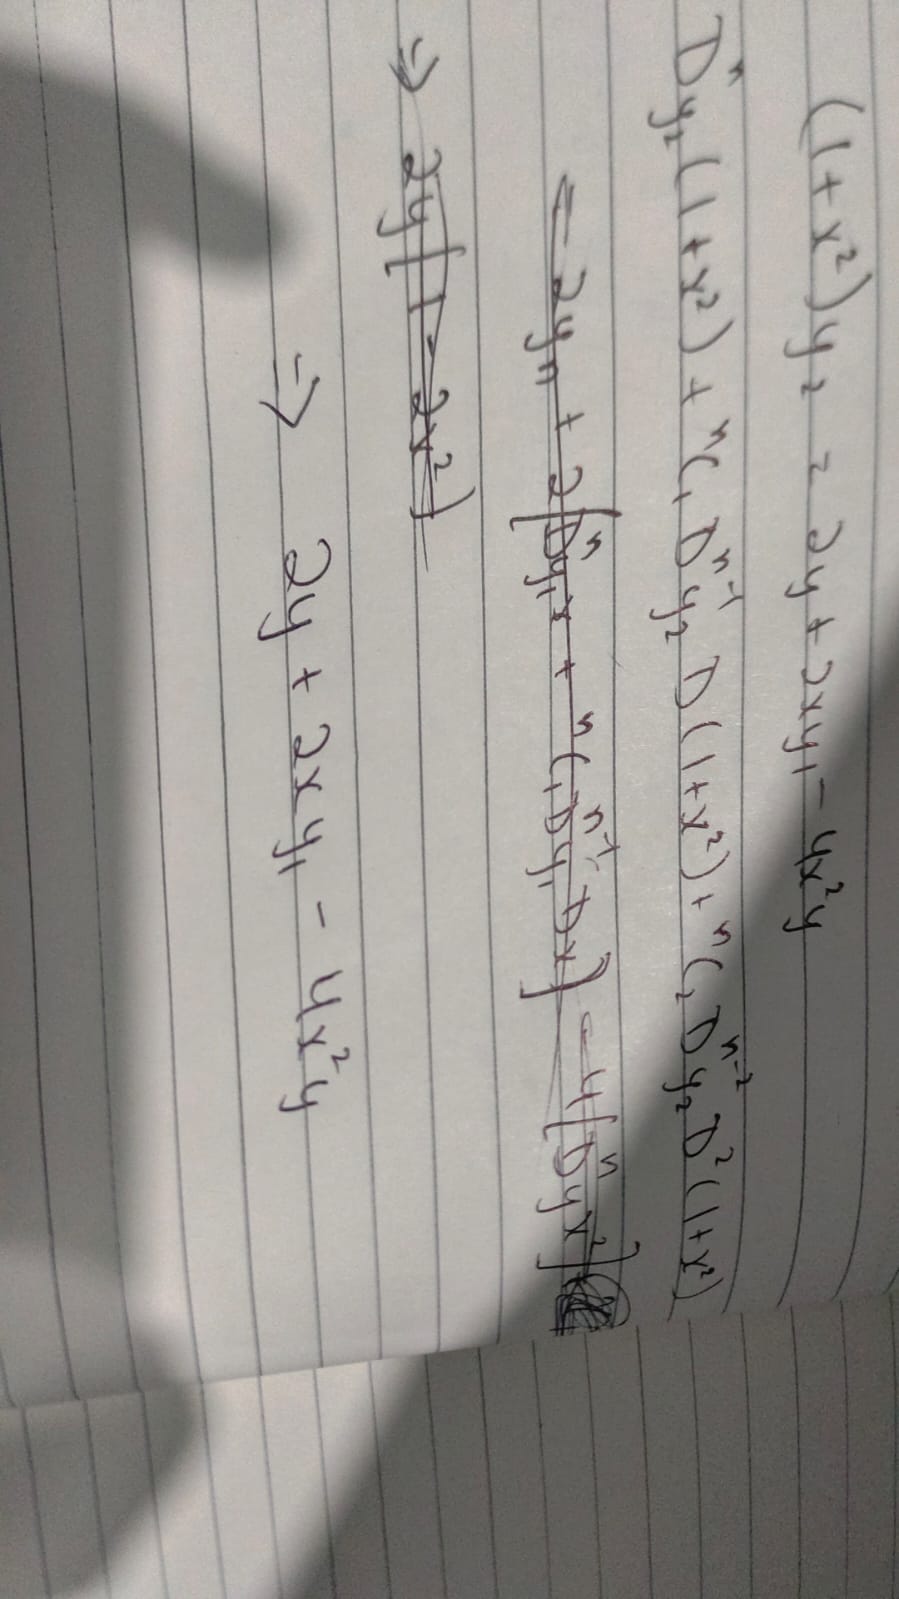 (1+x²)y₂ = 2y + 2xy₁ - 4x²y
Dⁿy₂(1+x²) + ⁿC₁ Dⁿ⁻¹y₂ D(1+x²) + ⁿC₂ Dⁿ⁻²y₂ D²(1+x²)
= 2yₙ + 2[Dⁿy₁x + ⁿC₁Dⁿ⁻¹y₁ Dx] - 4[Dⁿyx²]
⇒ 2y[1 - 2x²]
⇒ 2y + 2xy₁ - 4x²y